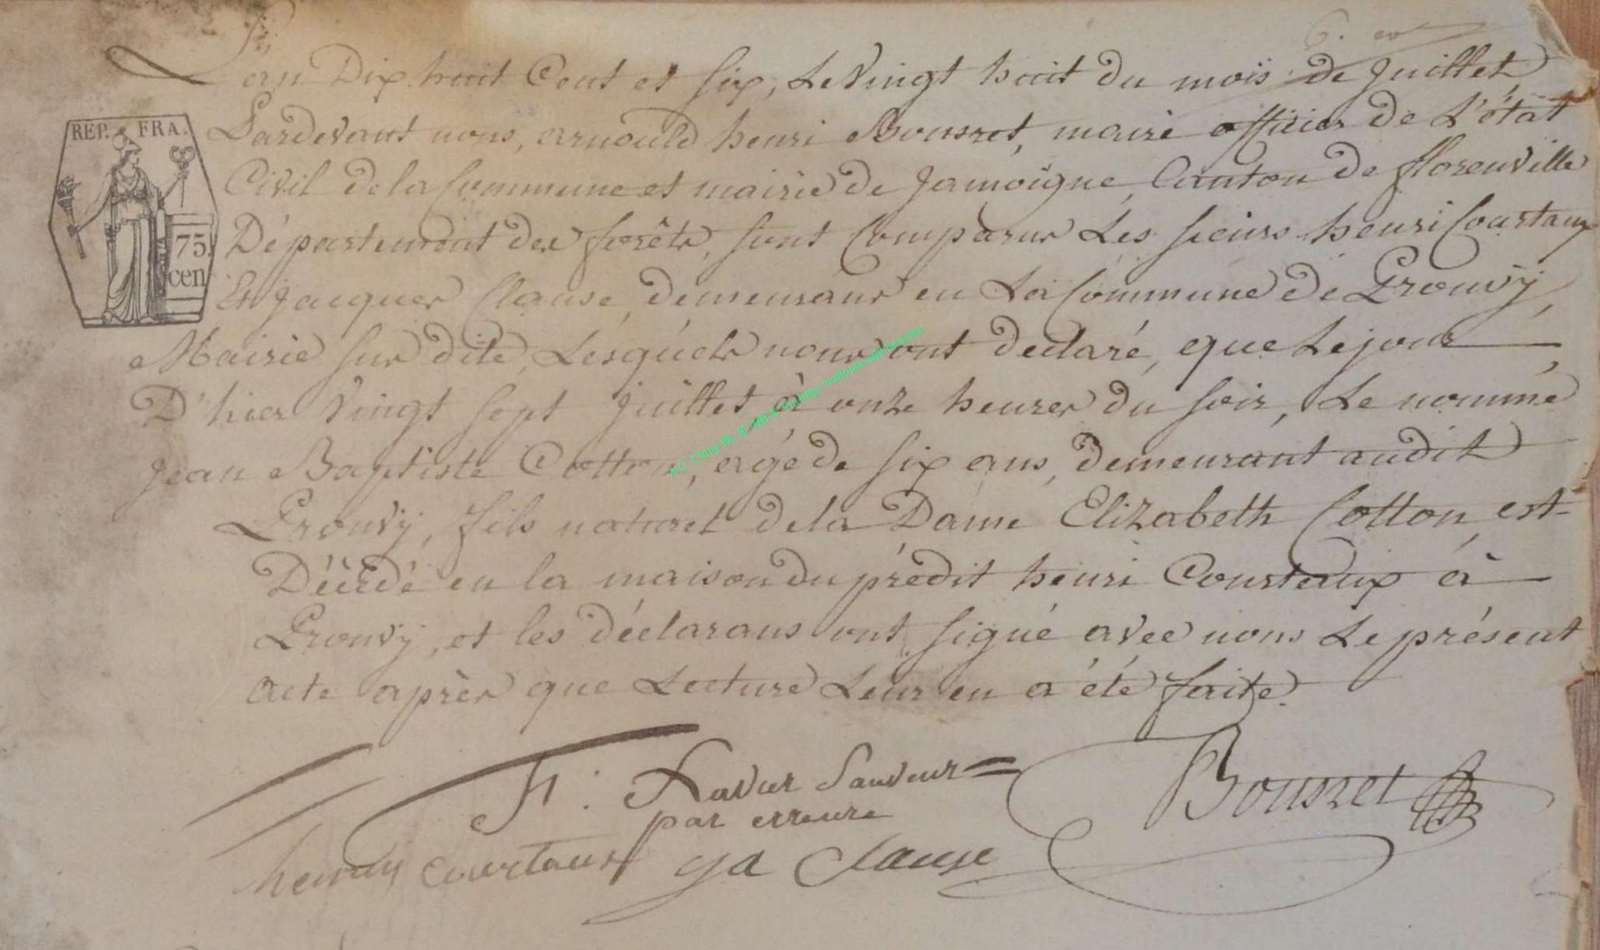 L'an Dix huit Cent et six, Le Vingt huit du mois de Juillet
Pardevant nous, arnould henri Bousret, maire officier de L'état
Civil de la Commune et mairie de Jamoigne, Canton de florenville
REP. FRA.
75
cen
Département des forêts, sont Comparus Les sieurs henri Courtaux
Et Jacques Clause, demeurans en La Commune de Prouvÿ
Mairie sur dite, Lesquels nous ont declaré, que Le jour
D'hier Vingt sept Juillet à onze heures du soir, Le nommé
Jean Baptiste Cotton, agé de six ans, demeurant audit
Prouvÿ, fils naturel de la Dame Elizabeth Cotton, est
Décédé en la maison du prédit henri Courtaux à
Prouvÿ, et les déclarans ont signé avec nous Le présent
acte après que Lecture Leur en a été faite.
Xavier Sauveur
par erreure
Bousret
henry courtaux ja Clause